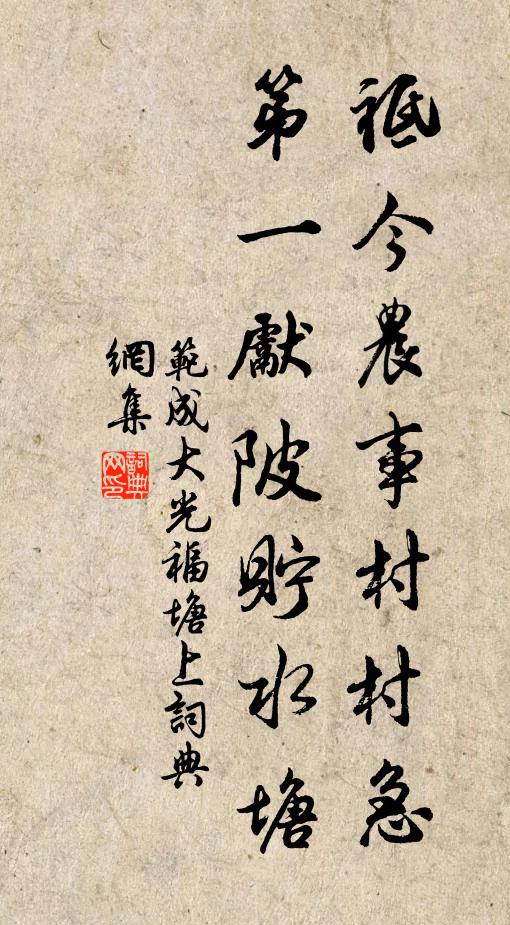 祗今農事村村急
第一獻陂貯水塘
範成大光福塘上詞典
網集
詞典
網印